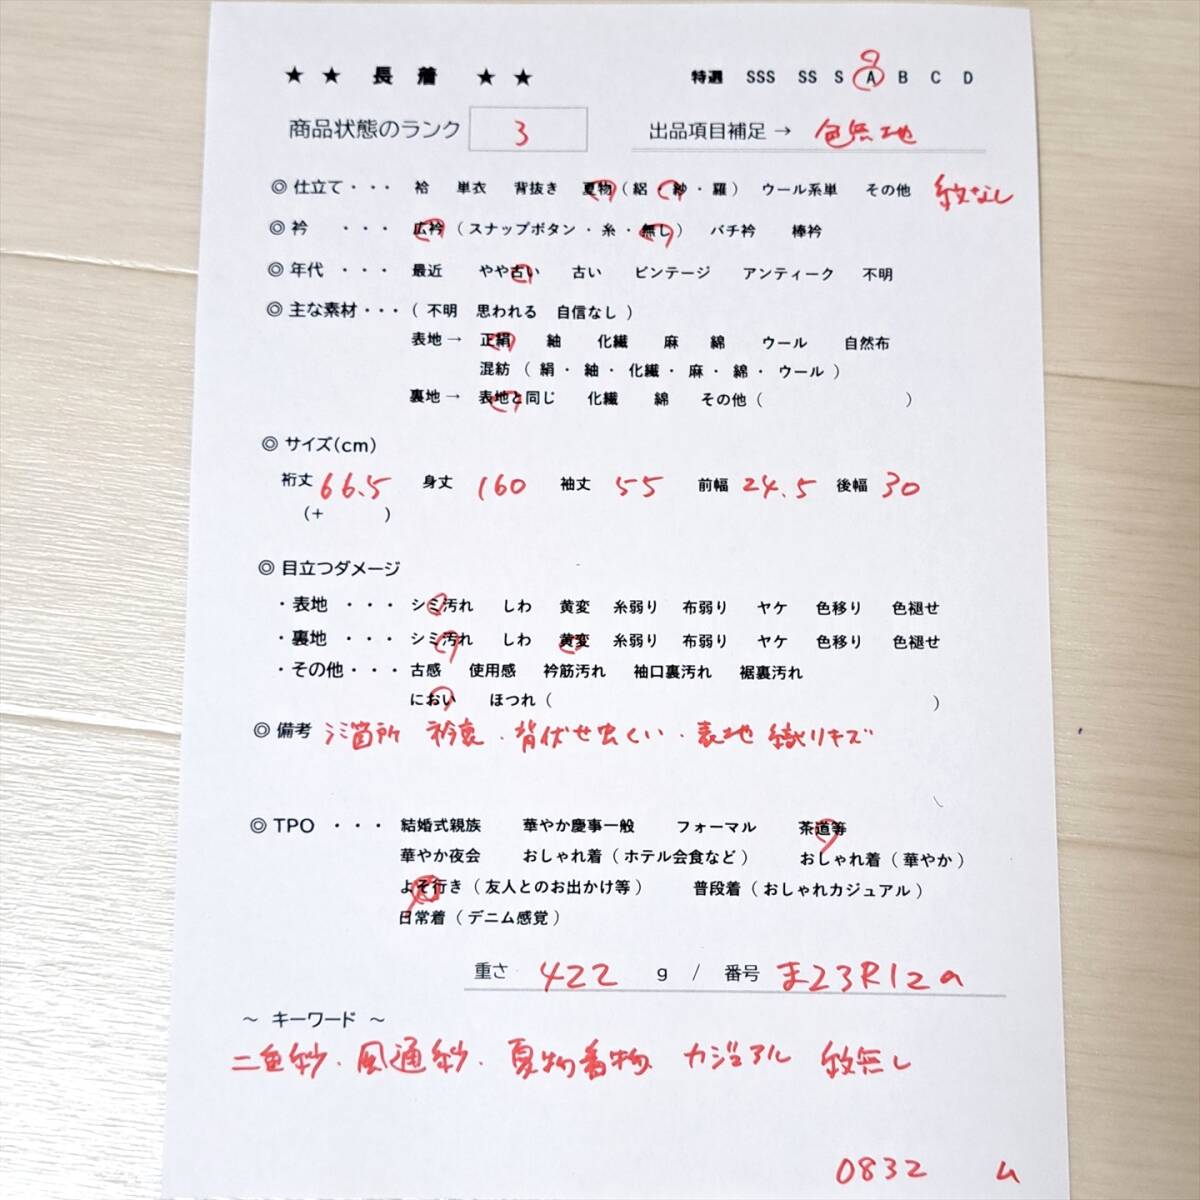 ★ ★ 長 着 ★ ★ 特選 SSS SS S A B C D
商品状態のランク 3 出品項目補足 → 色無地
◎ 仕立て・・・ 袷 単衣 背抜き 夏物 ( 絽 ・ 紗 ・ 羅 ) ウール系単 その他 紋なし
◎ 衿 ・・・ 広衿 ( スナップボタン ・ 糸 ・ 無し ) バチ衿 棒衿
◎ 年代 ・・・ 最近 やや古い 古い ビンテージ アンティーク 不明
◎ 主な素材・・・ ( 不明 思われる 自信なし )
表地→ 正絹 紬 化繊 麻 綿 ウール 自然布
混紡 ( 絹 ・ 紬 ・ 化繊 ・ 麻 ・ 綿 ・ ウール )
裏地→ 表地と同じ 化繊 綿 その他 ( )
◎ サイズ(cm)
裄丈 66.5 身丈 160 袖丈 55 前幅 24.5 後幅 30
(+ )
◎ 目立つダメージ
・表地 ・・・ シミ汚れ しわ 黄変 糸弱り 布弱り ヤケ 色移り 色褪せ
・裏地 ・・・ シミ汚れ しわ 黄変 糸弱り 布弱り ヤケ 色移り 色褪せ
・その他・・・ 古感 使用感 衿筋汚れ 袖口裏汚れ 裾裏汚れ
におい ほつれ ( )
◎ 備考 シミ箇所 衿裏 ・ 背伏せ虫くい ・ 表地 織りキズ
◎ TPO ・・・ 結婚式親族 華やか慶事一般 フォーマル 茶道等
華やか夜会 おしゃれ着 ( ホテル会食など ) おしゃれ着 ( 華やか )
よそ行き ( 友人とのお出かけ等 ) 普段着 ( おしゃれカジュアル )
日常着 ( デニム感覚 )
重さ 422 g / 番号 ま23R12a
～ キーワード ～
二重紗 ・ 風通紗 ・ 夏物着物 カジュアル 紋無し
0832 ム